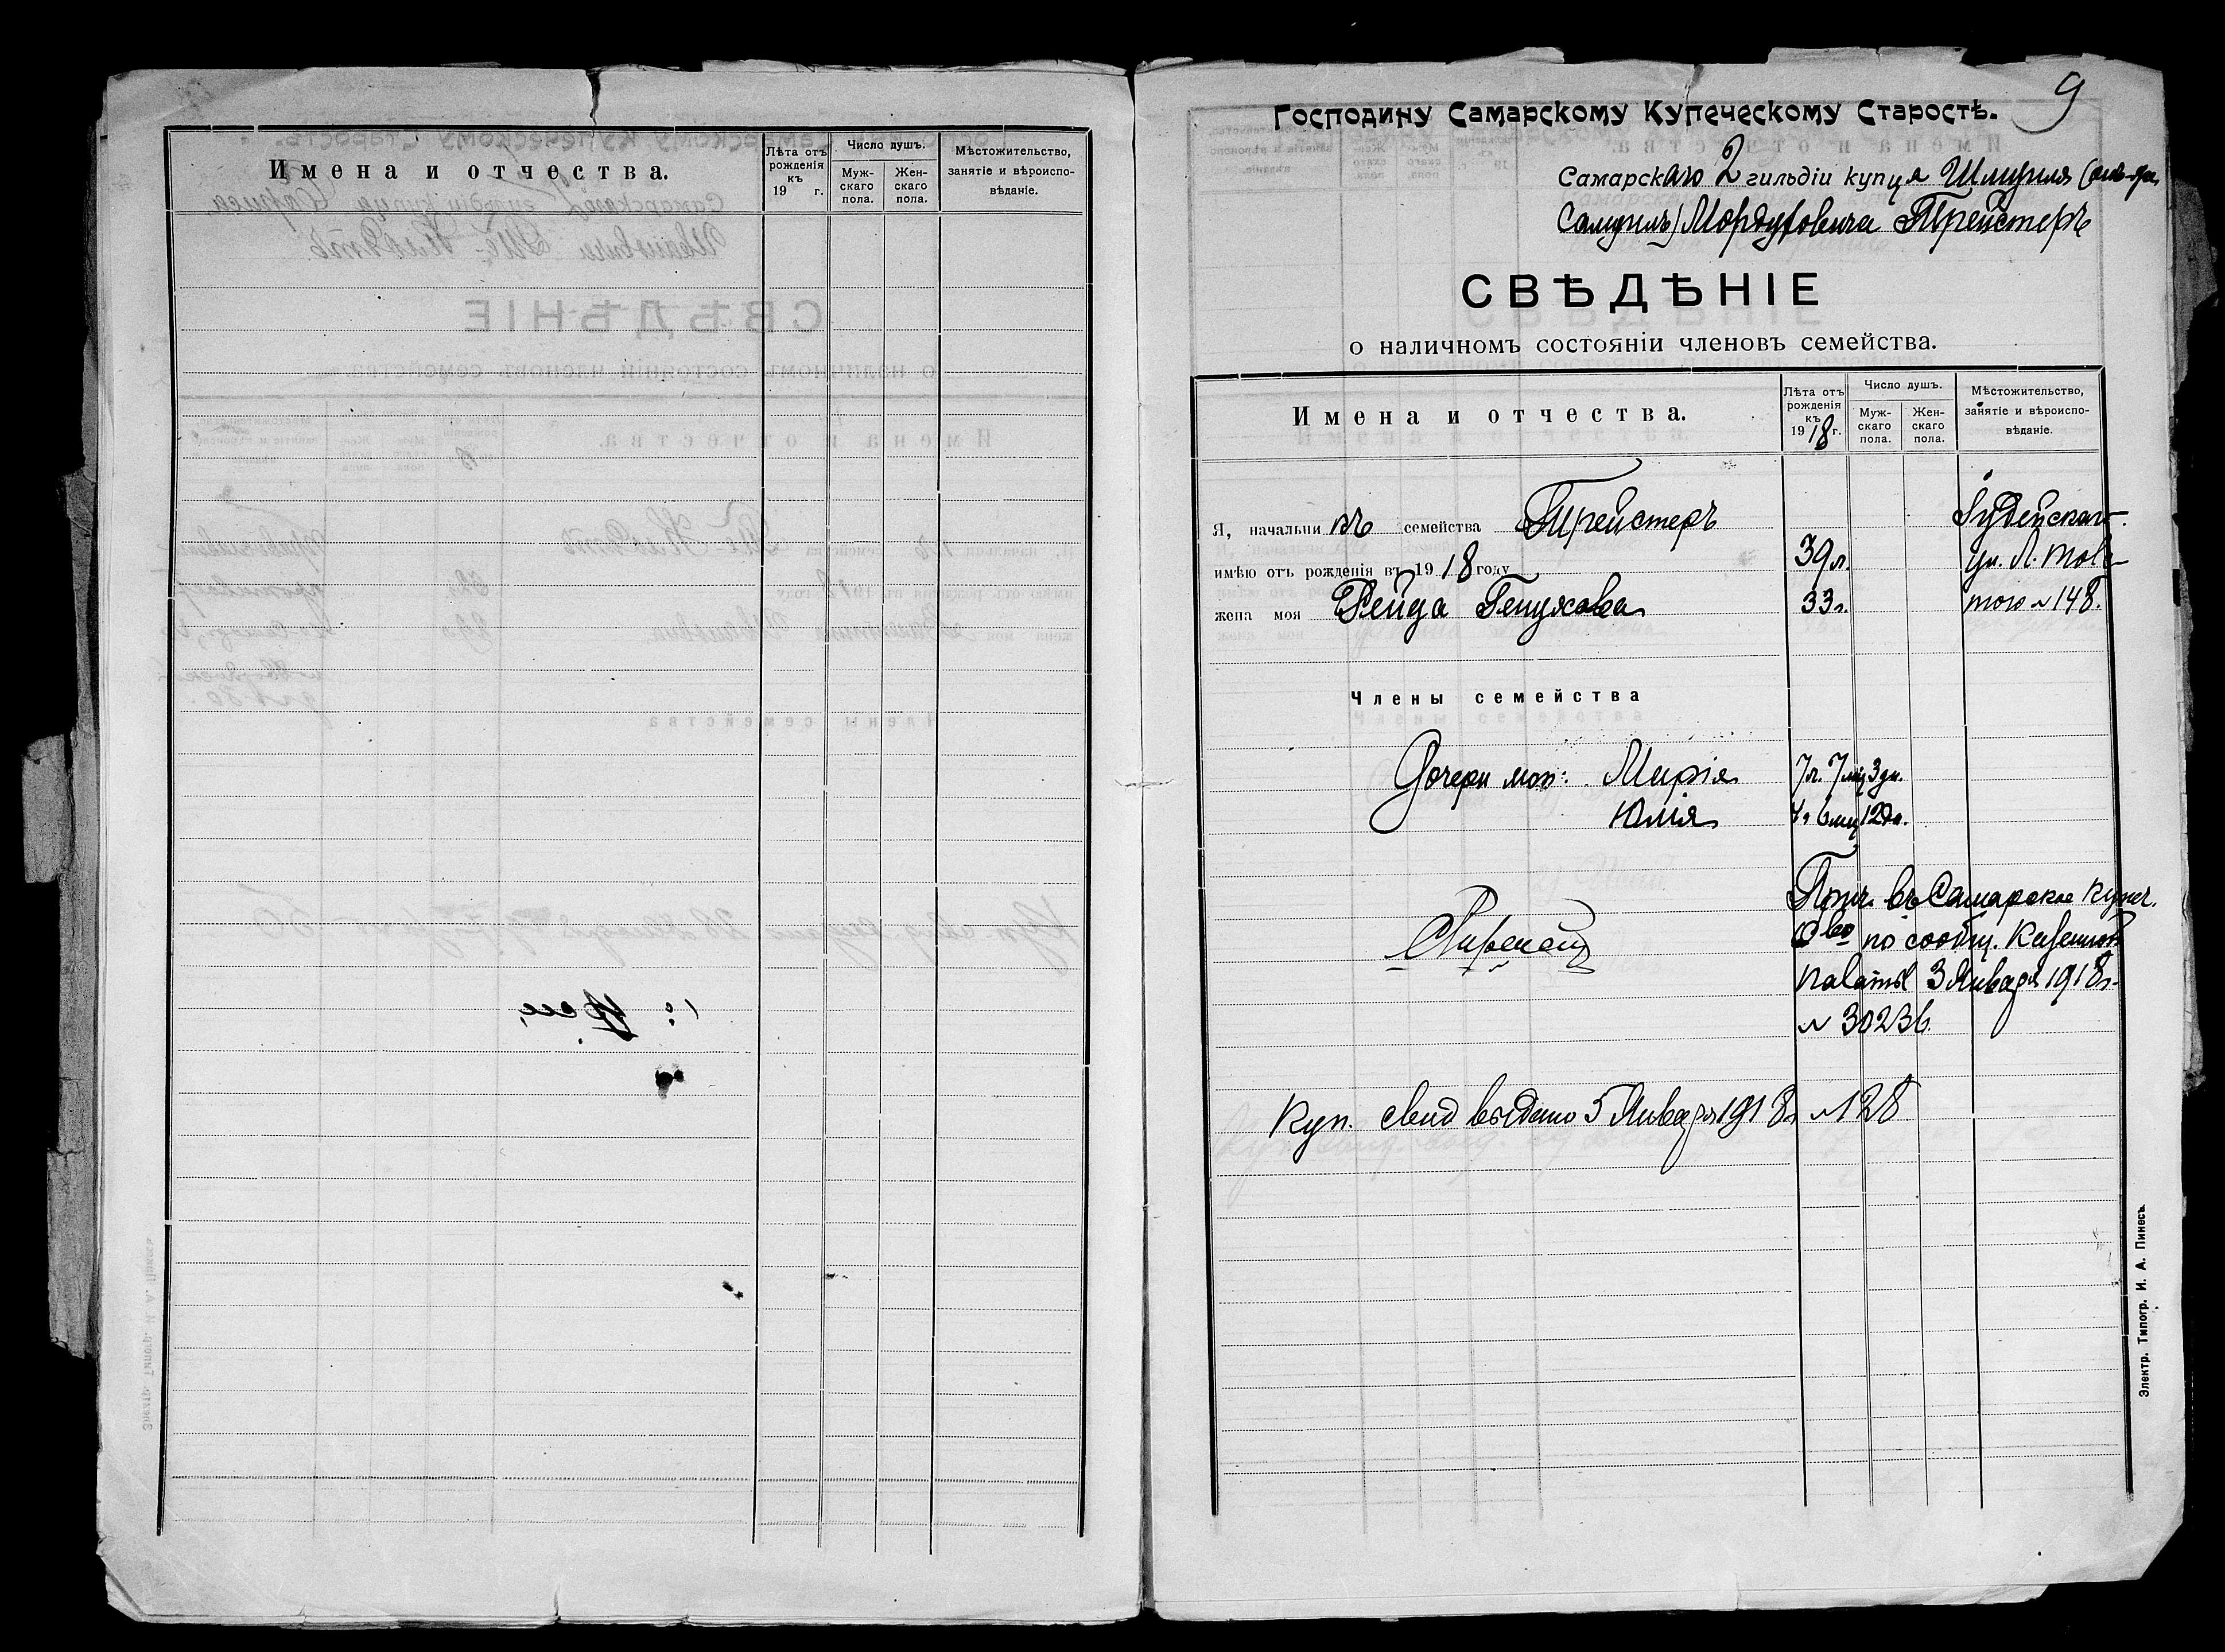 Имена и отчества.
Лѣта отъ рожденія къ 19 г.
Число душъ.
Муж-скаго пола.
Жен-скаго пола.
Мѣстожительство, занятіе и вѣроиспо-вѣданіе.
9
Господину Самарскому Купеческому Старостѣ.
Самарскаго 2 гильдіи купца Шмуиля (онъ-же
Самуилъ) Мордуховича Трейстеръ
СВѢДѢНІЕ
о наличномъ состояніи членовъ семейства.
Имена и отчества.
Лѣта отъ рожденія къ 1918 г.
Число душъ.
Муж-скаго пола.
Жен-скаго пола.
Мѣстожительство, занятіе и вѣроиспо-вѣданіе.
Я, начальникъ семейства Трейстеръ Іудейскаго
имѣю отъ рожденія въ 1918 году 39 л. ул. Л. Толс-
жена моя 33 л. того № 148.
Члены семейства
Дочери мои: Марія 7 л. 7 мц 3 дн.
Юлія 4 л 6 мц 12 дн.
Прич. въ Самарское купеч.
Сво по сообщ. Казенной
Палаты 3 Января 1918 г.
№ 30236
Куп. свид выдано 5 Января 1918 г № 128
Электр. Типогр. И. А. Пинесъ.